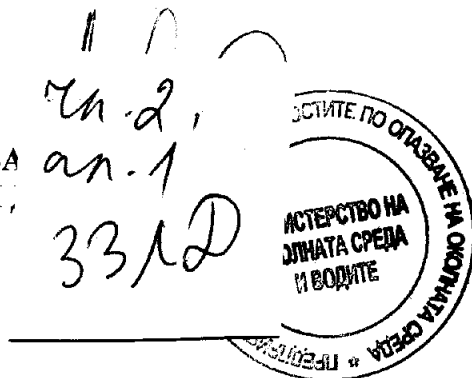 чл. 2,
А ал. 1
ЗЗЛД
ОСТИТЕ ПО ОПАЗВАНЕ НА ОКОЛНАТА СРЕДА * ПРЕДПРИЯ
ИСТЕРСТВО НА
ОЛНАТА СРЕДА
И ВОДИТЕ